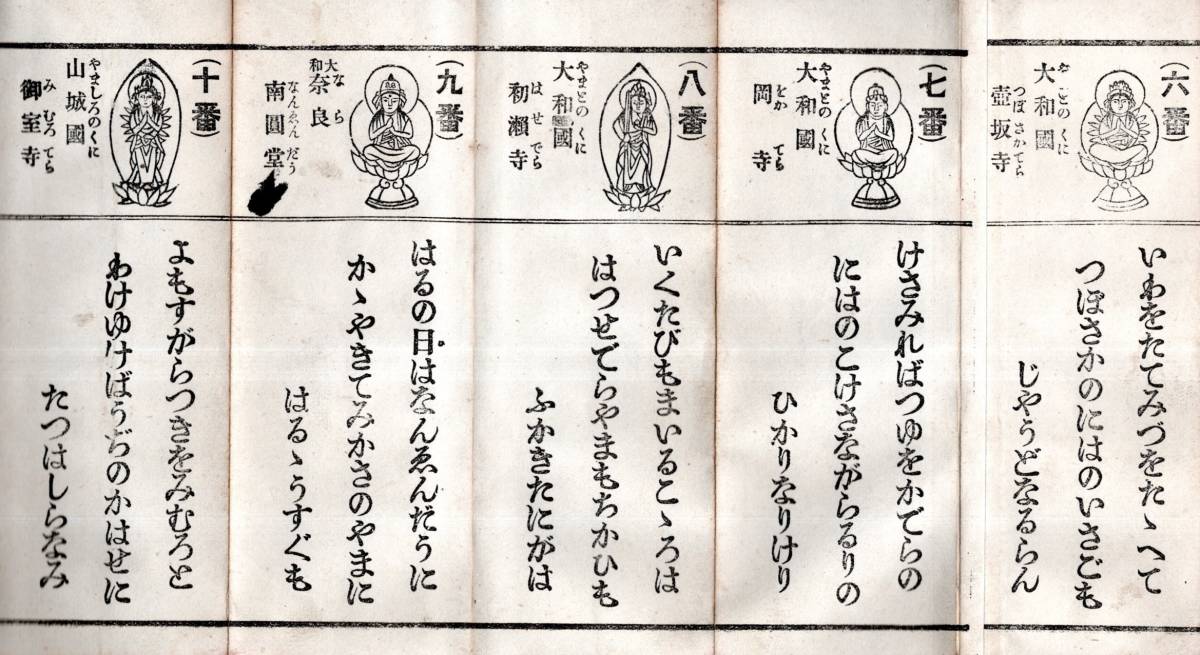 (六番)
大和國
やまとのくに
壺坂寺
つぼさかてら
いわをたてみづをたゝへて
つぼさかのにはのいさごも
じやうどなるらん
(七番)
大和國
やまとのくに
岡寺
をかてら
けさみればつゆをかでらの
にはのこけさながらるりの
ひかりなりけり
(八番)
大和國
やまとのくに
初瀬寺
はせでら
いくたびもまいるこゝろは
はつせでらやまもちかひも
ふかきたにがは
(九番)
大和奈良
なら
南圓堂
なんゑんだう
はるの日はなんゑんだうに
かゝやきてみかさのやまに
はるゝうすぐも
(十番)
山城國
やましろのくに
御室寺
みむろてら
よもすがらつきをみむろと
わけゆけばうぢのかはせに
たつはしらなみ